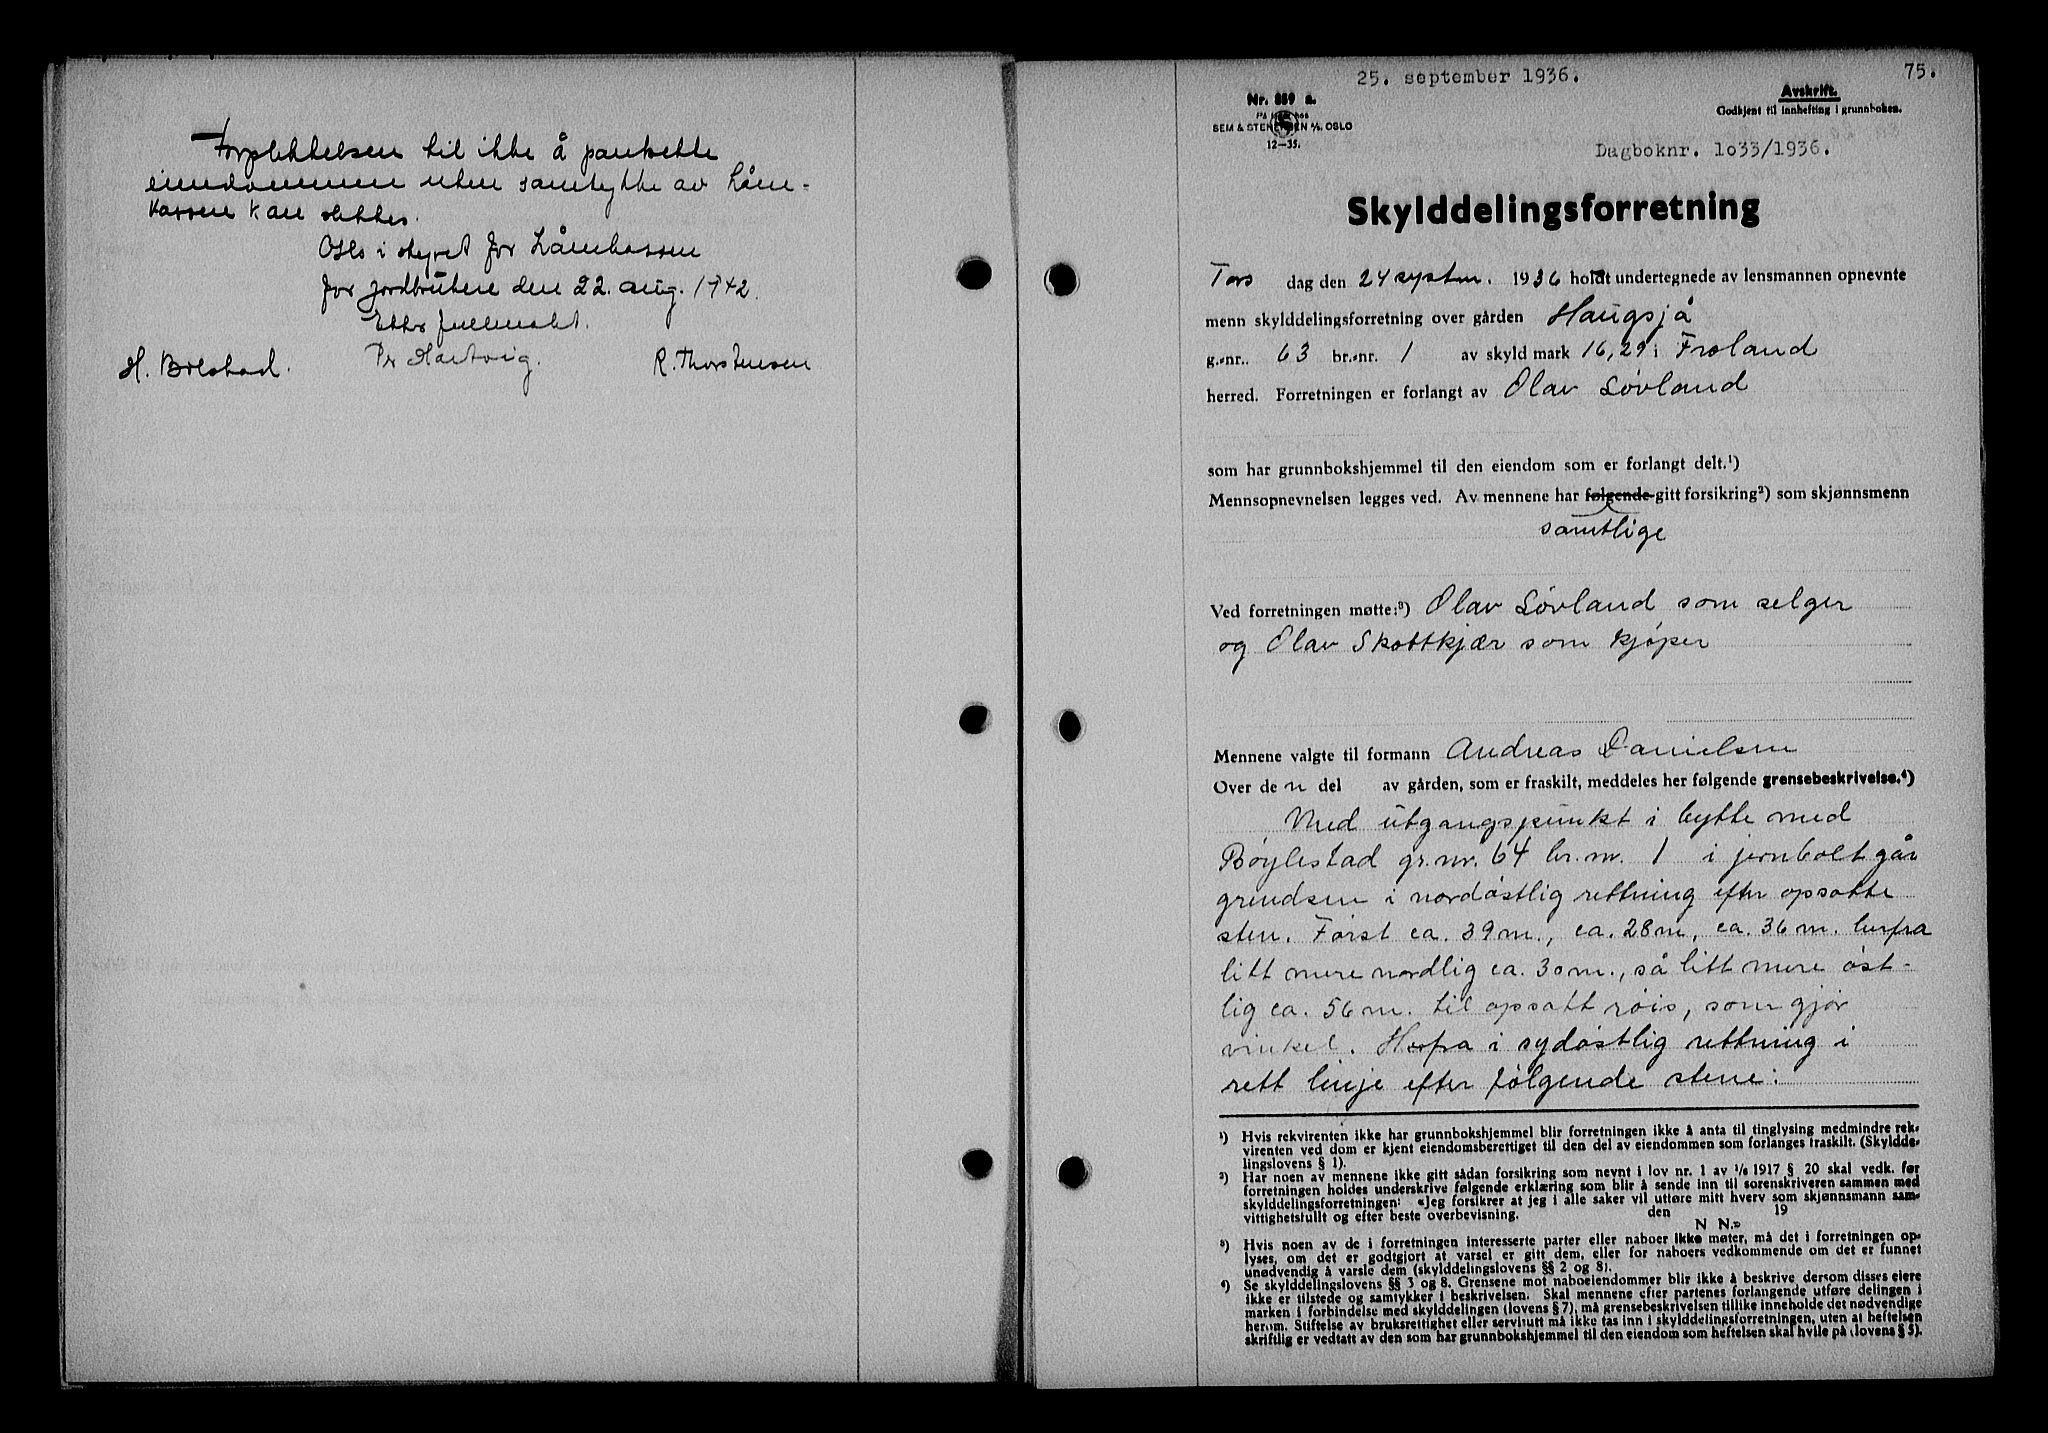 Forpliktelsen til ikke å pantsette
eiendommen uten samtykke av Låne-
kassen kan slettes.
Oslo i styret for Lånekassen
for jordbrukere den 22. aug. 1942.
Etter fullmakt.
H. Bolstad. Per Hartvig. R. Thorstensen
25. september 1936. 75.
Nr. 859 a. Avskrift.
Godkjent til innhefting i grunnboken.
På lager hos
SEM & STENERSEN A/S, OSLO
12—35.
Dagboknr. 1033/1936.
Skylddelingsforretning
Tors dag den 24 septem. 1936 holdt undertegnede av lensmannen opnevnte
menn skylddelingsforretning over gården Haugsjå
g.-nr. 63 br.-nr. 1 av skyld mark 16,29 i Froland
herred. Forretningen er forlangt av Olav Løvland
som har grunnbokshjemmel til den eiendom som er forlangt delt.¹)
Mennsopnevnelsen legges ved. Av mennene har følgende gitt forsikring²) som skjønnsmenn
samtlige
Ved forretningen møtte:³) Olav Løvland som selger
og Olav Skottkjær som kjøper
Mennene valgte til formann Andreas Danielsen
Over den del av gården, som er fraskilt, meddeles her følgende grensebeskrivelse.⁴)
Med utgangspunkt i bytte med
Bøylestad gr.nr. 64 br.nr. 1 i jernbolt går
grendsen i nordøstlig rettning efter opsatte
sten. Først ca. 39 m., ca. 28 m, ca. 36 m. herfra
litt mere nordlig ca. 30 m., så litt mere øst-
lig ca. 56 m. til opsatt røis, som gjør
vinkel. Herfra i sydøstlig rettning i
rett linje efter følgende stene:
¹) Hvis rekvirenten ikke har grunnbokshjemmel blir forretningen ikke å anta til tinglysing medmindre rek-
virenten ved dom er kjent eiendomsberettiget til den del av eiendommen som forlanges fraskilt. (Skyldde-
lingslovens § 1).
²) Har noen av mennene ikke gitt sådan forsikring som nevnt i lov nr. 1 av 1/6 1917 § 20 skal vedk. før
forretningen holdes underskrive følgende erklæring som blir å sende inn til sorenskriveren sammen med
skylddelingsforretningen: «Jeg forsikrer at jeg i alle saker vil utføre mitt hverv som skjønnsmann sam-
vittighetsfullt og efter beste overbevisning. den 19
N N.»
³) Hvis noen av de i forretningen interesserte parter eller naboer ikke møter, må det i forretningen op-
lyses, om det er godtgjort at varsel er gitt dem, eller for naboers vedkommende om det er funnet
unødvendig å varsle dem (skylddelingslovens §§ 2 og 8).
⁴) Se skylddelingslovens §§ 3 og 8. Grensene mot naboeiendommer blir ikke å beskrive dersom disses eiere
ikke er tilstede og samtykker i beskrivelsen. Skal mennene efter partenes forlangende utføre delingen i
marken i forbindelse med skylddelingen (lovens § 7), må grensebeskrivelsen tillike inneholde det nødvendige
herom. Stiftelse av bruksrettighet eller servitutt må ikke tas inn i skylddelingsforretningen, uten at heftelsen
skriftlig er vedtatt av den som har grunnbokshjemmel til den eiendom som heftelsen skal hvile på (lovens § 5).